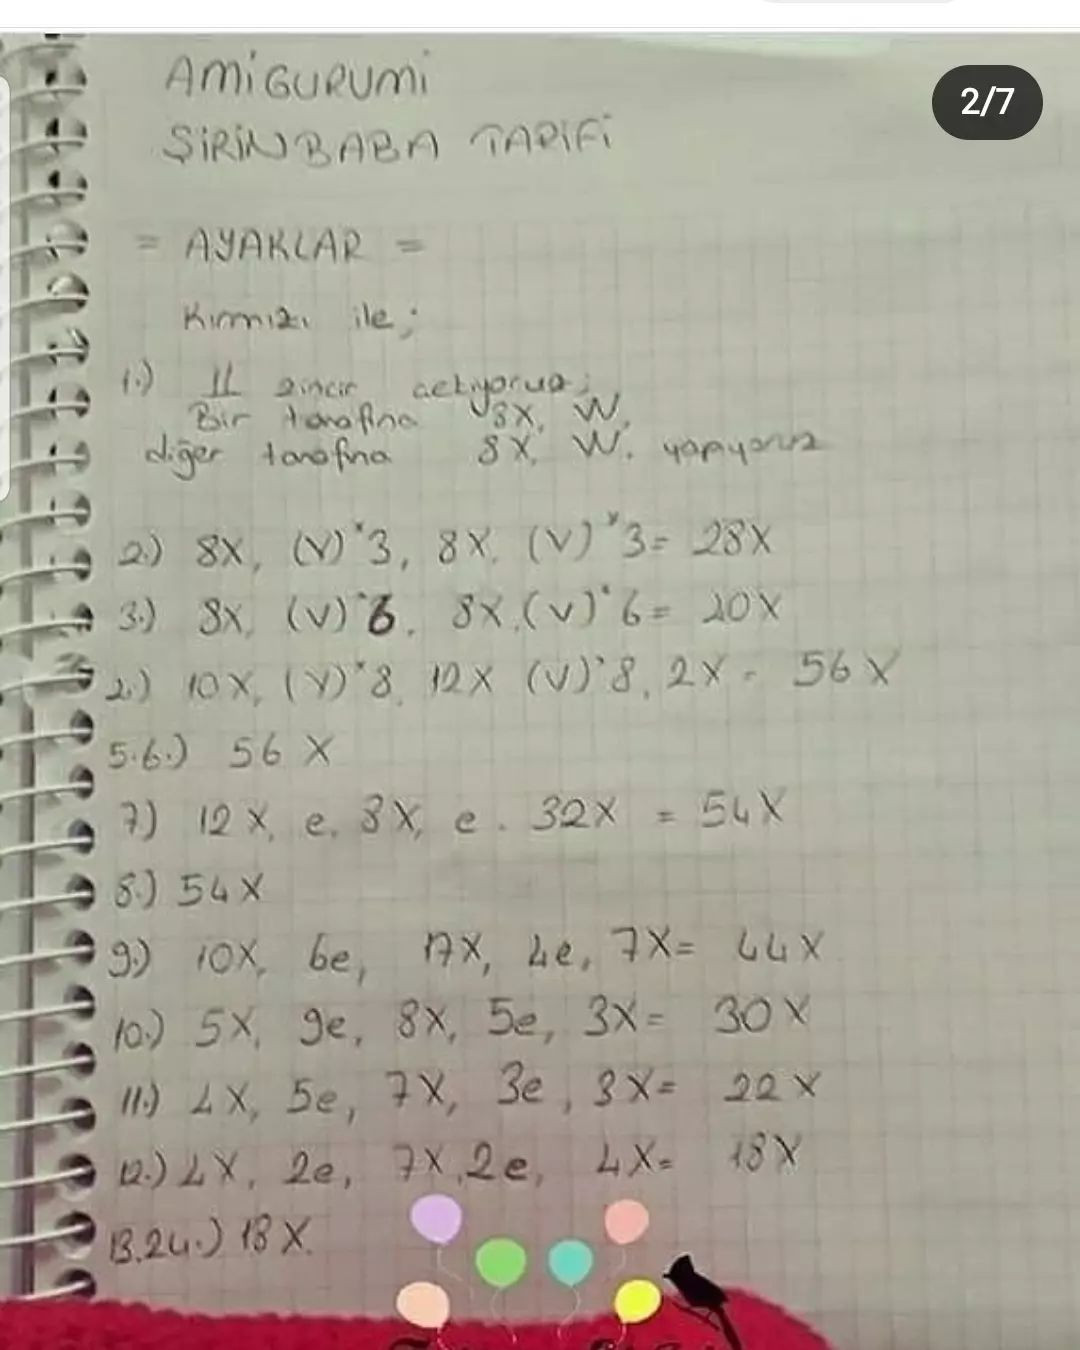 2/7
AMİGURUMİ
ŞİRİN BABA TARİFİ
= AYAKLAR =
Kırmızı ile;
1.) 11 zincir çekiyoruz;
Bir tarafına 8X, W,
diğer tarafına 8X, W. yapıyoruz
2.) 8X, (V)*3, 8X, (V)*3= 28X
3.) 8X, (V)*6, 8X, (V)*6= 20X
2.) 10X, (V)*8, 12X (V)*8, 2X = 56X
5.6.) 56 X
7) 12X, e, 8X, e. 32X = 54X
8.) 54X
9.) 10X, 6e, 17X, 4e, 7X= 44X
10.) 5X, 9e, 8X, 5e, 3X= 30X
11.) 4X, 5e, 7X, 3e, 3X= 22X
12.) 4X, 2e, 7X, 2e, 4X= 18X
13.24.) 18X.